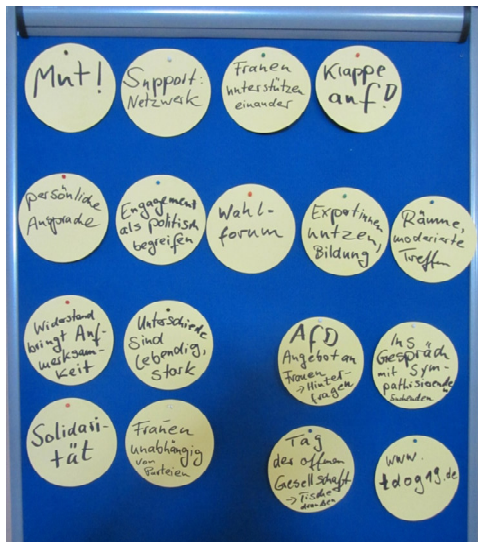 Mut!
Support:
Netzwerk
Frauen
unterstützen
einander
Klappe
auf!
persönliche
Ansprache
Engagement
als politisch
begreifen
Wahl-
forum
Expertinnen
nutzen,
Bildung,
Räume,
moderierte
Treffen
Widerstand
bringt Auf-
merksam-
keit
Unterschiede
sind
lebendig,
stark
AfD
Angebot an
Frauen
→ Hinter-
fragen
Ins
Gespräch
mit Sym-
pathisierenden
Solidari-
tät
Frauen
unabhängig
von
Parteien
Tag
der offenen
Gesellschaft
→ Tische
draußen
www.
tdog19.de